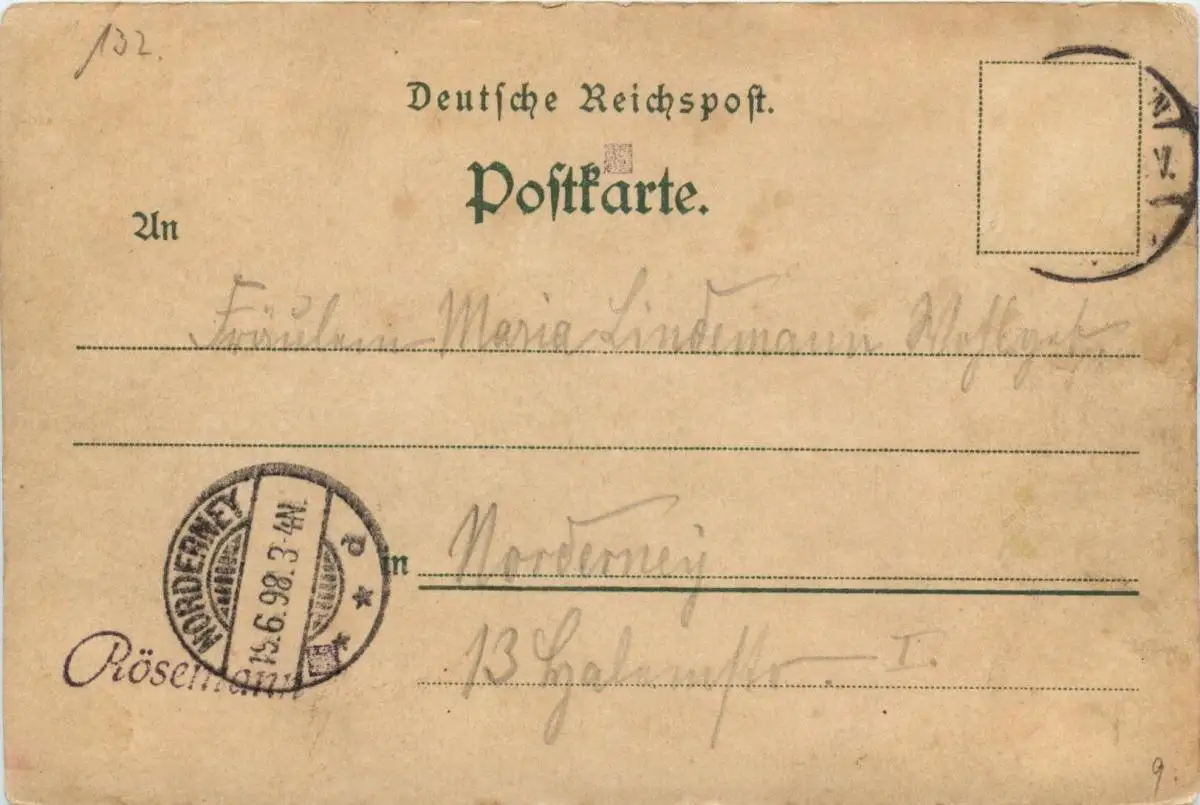 132.
Deutsche Reichspost.
Postkarte.
An
Fräulein Maria Lindemann Wohlgeb.
NORDERNEY
19.6.98. 3-4N.
in Norderney
13 I.
Rösemann
9.